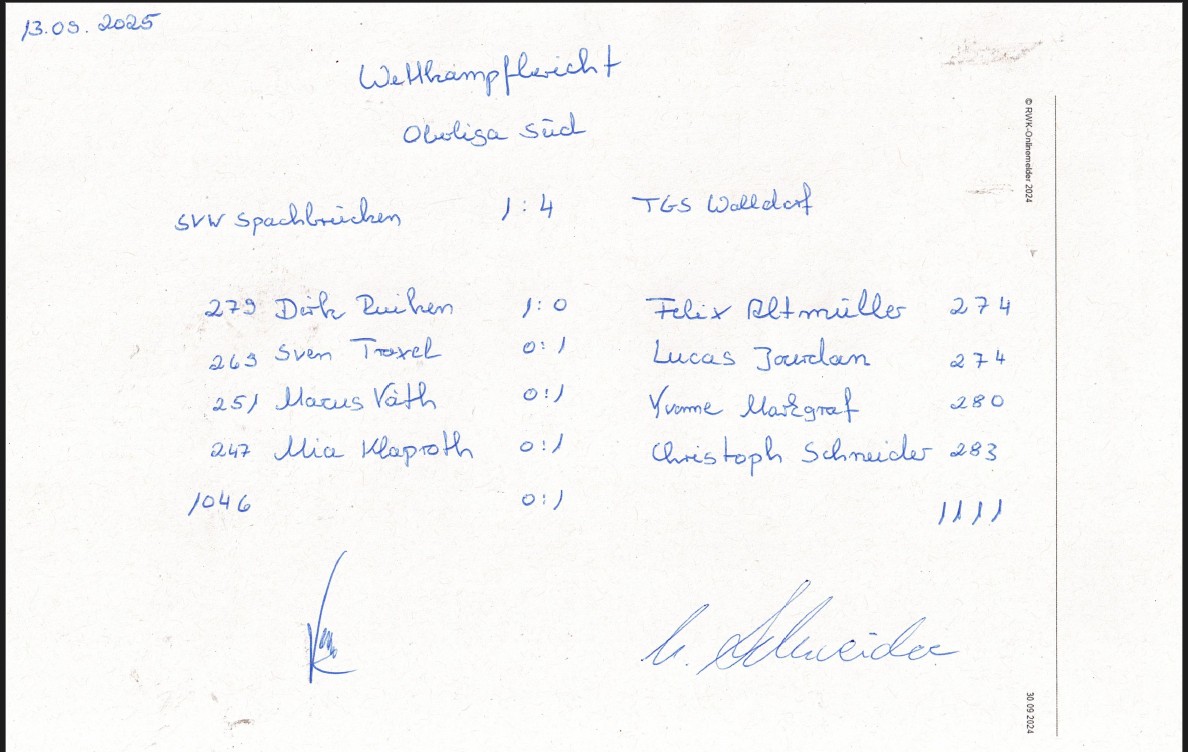 13.09.2025
Wettkampfbericht
Oberliga Süd
SVW Spachbrücken 1:4 TGS Walldorf
279 Dirk Ruiken 1:0 Felix Altmüller 274
269 Sven Traxel 0:1 Lucas Jourdan 274
251 Marcus Väth 0:1 Yvonne Markgraf 280
247 Mia Klaproth 0:1 Christoph Schneider 283
1046 0:1 1111
Schneider
© RWK-Onlinemelder 2024
30.09.2024